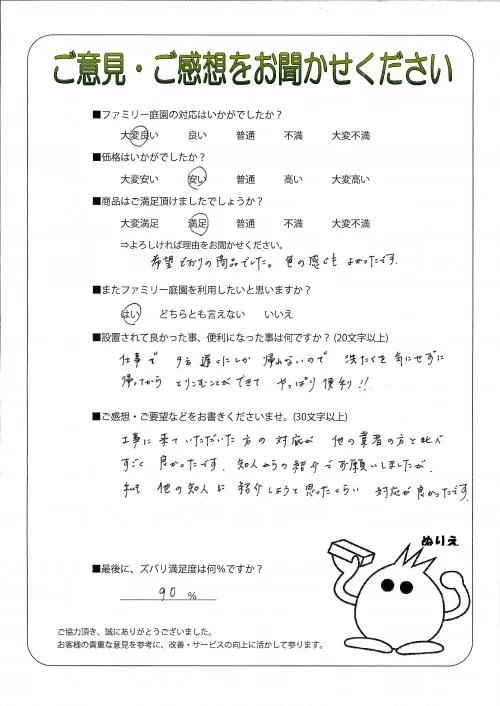 ご意見・ご感想をお聞かせください
■ファミリー庭園の対応はいかがでしたか？
大変良い 良い 普通 不満 大変不満
■価格はいかがでしたか？
大変安い 安い 普通 高い 大変高い
■商品はご満足頂けましたでしょうか？
大変満足 満足 普通 不満 大変不満
⇒よろしければ理由をお聞かせください。
希望どおりの商品でした。色の感じも よかったです.
■またファミリー庭園を利用したいと思いますか？
はい どちらとも言えない いいえ
■設置されて良かった事、便利になった事は何ですか？(20文字以上)
仕事で 夕方 遅くにしか 帰れないので 洗たくを気にせずに
帰ってから とりこむことができて やっぱり 便利!!
■ご感想・ご要望などをお書きくださいませ。(30文字以上)
工事に来ていただいた方の対応が 他の業者の方と比べ
すごく 良かったです. 知人からの紹介でお願いしましたが.
私も 他の知人に 紹介しようと思ったくらい 対応が良かったです.
ぬりえ
■最後に、ズバリ満足度は何％ですか？
90 ％
ご協力頂き、誠にありがとうございました。
お客様の貴重な意見を参考に、改善・サービスの向上に活かして参ります。